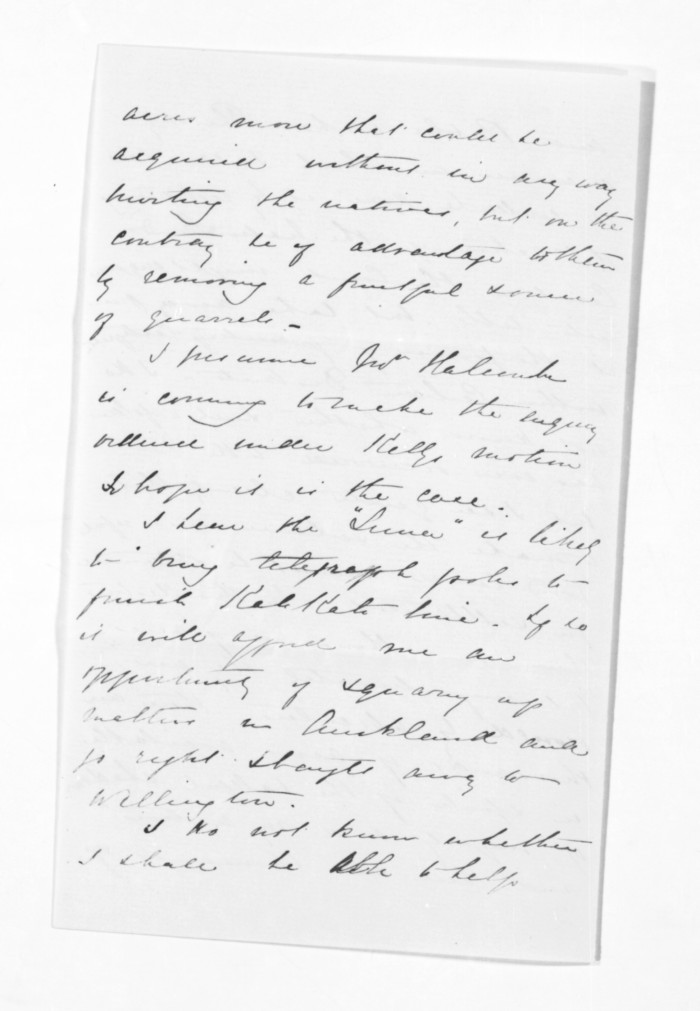 acres more that could be
acquired without in any way
hurting the natives, but on the
contrary be of advantage to them
by removing a fruitful source
of quarrels. -
I presume Mr Halcombe
is coming to make the inquiry
ordered under Kellys motion
I hope it is the case.
I hear the "Luna" is likely
to bring telegraph poles to
finish KatiKati line. If so
it will afford me an
opportunity of squaring up
matters in Auckland and
go right straight away to
Wellington.
I do not know whether
I shall be able to help